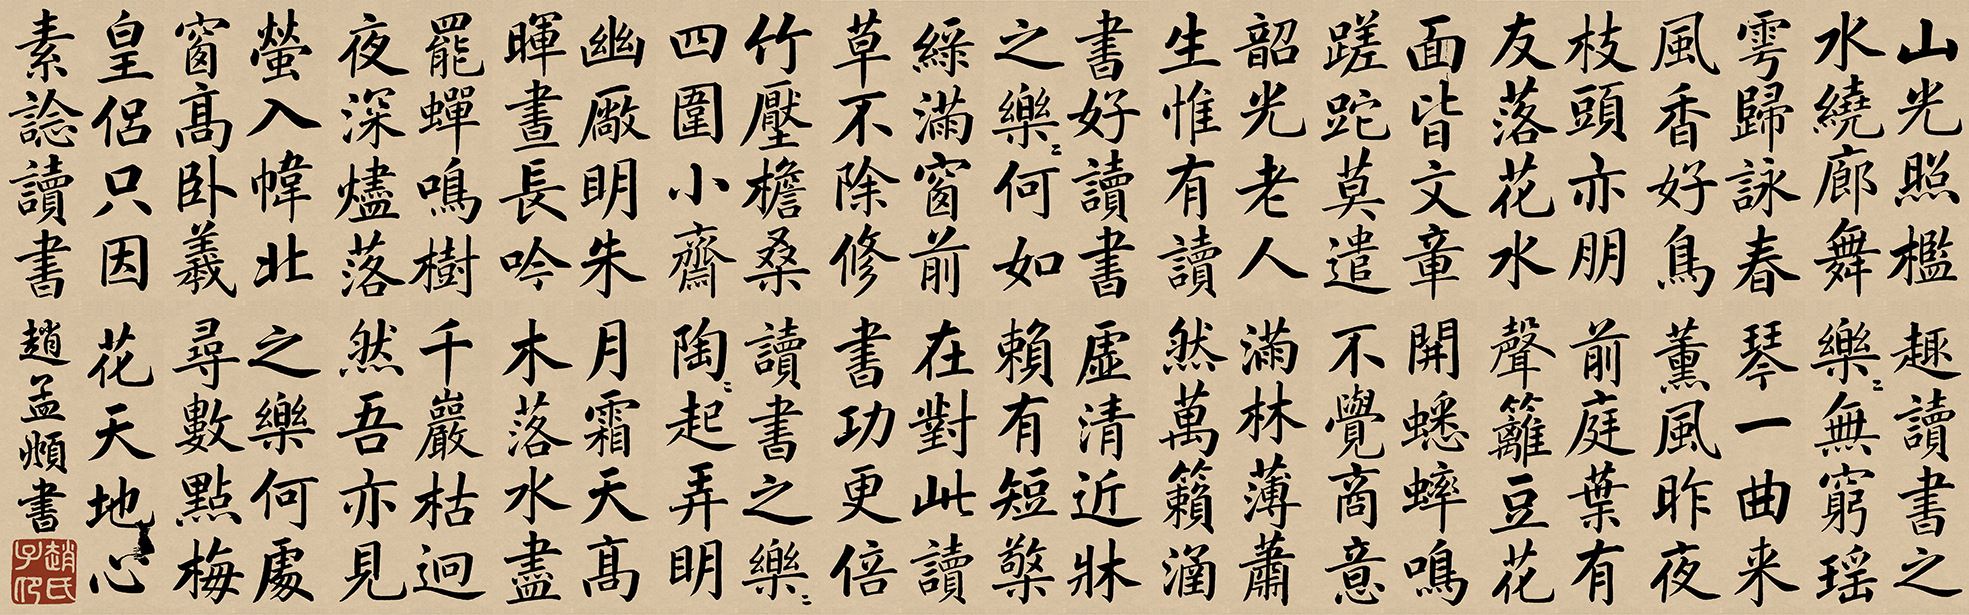 山光照檻
水繞廊舞
雩歸詠春
風香好鳥
枝頭亦朋
友落花水
面皆文章
蹉跎莫遣
韶光老人
生惟有讀
書好讀書
之樂〻何如
綠滿窗前
草不除修
竹壓檐桑
四圍小齋
幽厰明朱
暉晝長吟
罷蟬鳴樹
夜深燼落
螢入幃北
窗高卧羲
皇侶只因
素諗讀書
趣讀書之
樂〻無窮瑶
琴一曲来
薰風昨夜
前庭葉有
聲籬豆花
開蟋蟀鳴
不覺商意
滿林薄蕭
然萬籟涵
虛清近牀
賴有短檠
在對此讀
書功更倍
讀書之樂〻
陶〻起弄明
月霜天高
木落水盡
千巖枯迥
然吾亦見
之樂何處
尋數點梅
花天地心
趙孟頫書
趙氏子卬